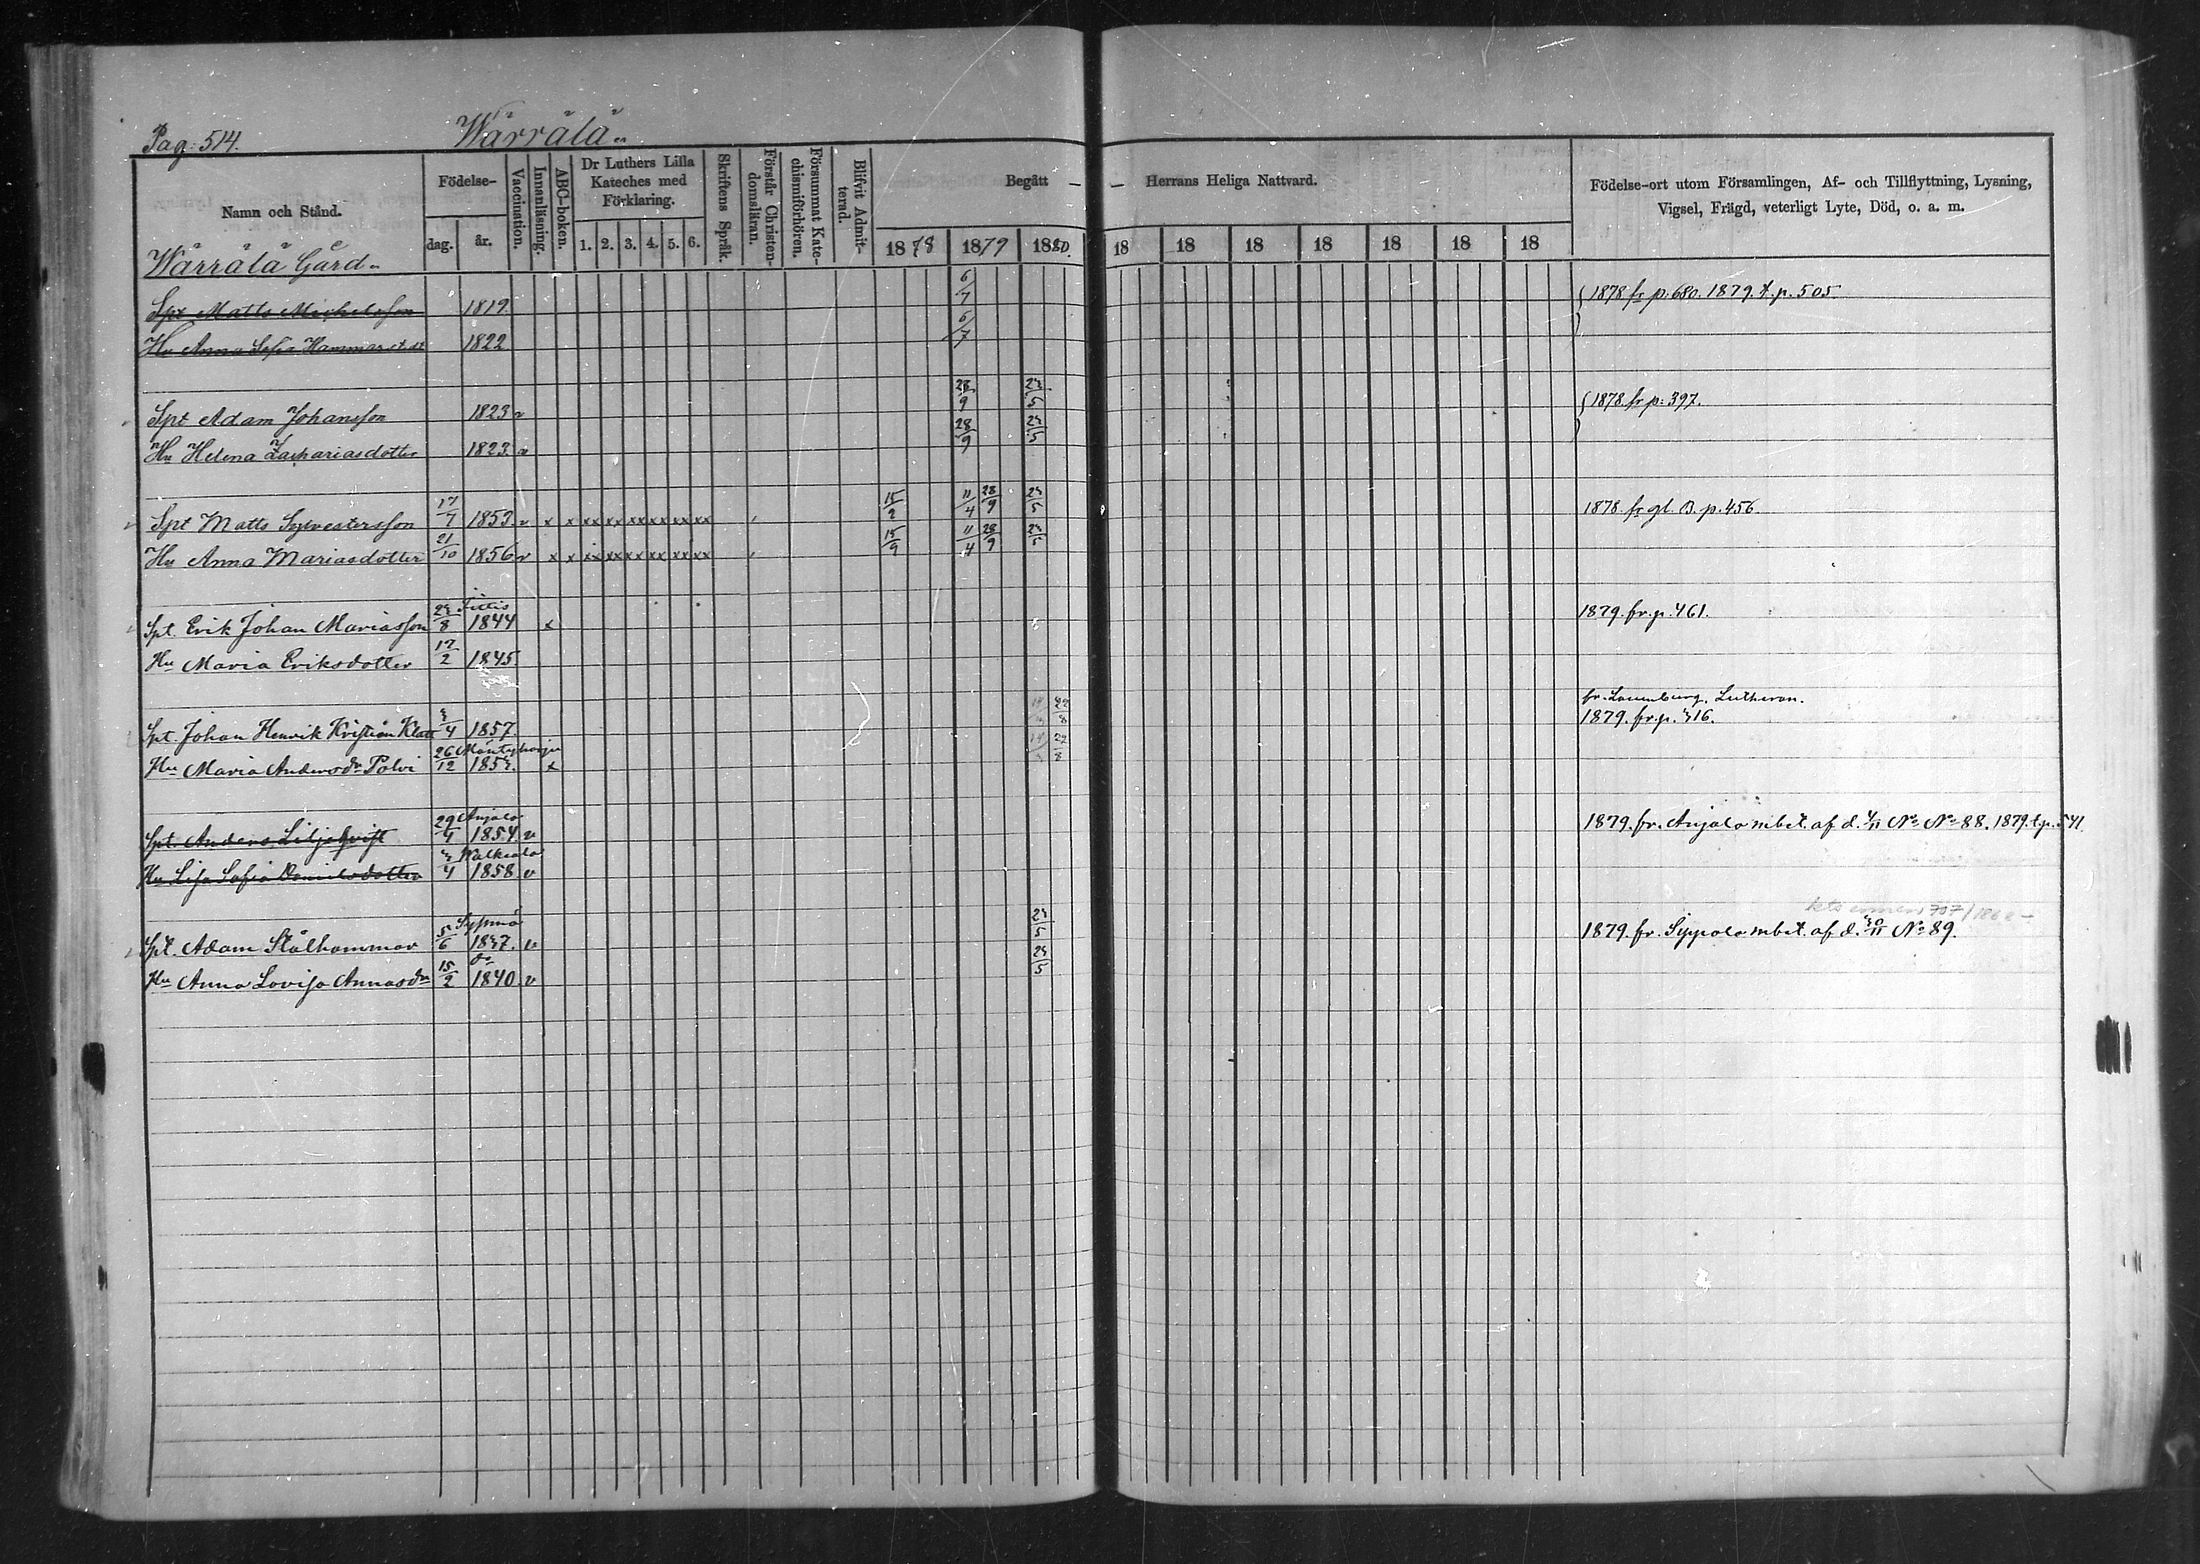 Pag. 514.
Wärrälä
Namn och Stånd.
Födelse-
dag.
år.
Vaccination.
Innanläsning.
ABC-boken.
Dr Luthers Lilla Kateches med Förklaring.
1. 2. 3. 4. 5. 6.
Skriftens Språk.
Förstår Christendomsläran.
Försummat Katechismiförhören.
Blifvit Admitterad.
Begått — — Herrans Heliga Nattvard.
1878 1879 1880. 18 18 18 18 18 18 18
Födelse-ort utom Församlingen, Af- och Tillflyttning, Lysning,
Vigsel, Frägd, veterligt Lyte, Död, o. a. m.
Wärrälä Gård
Spt Matts Michelsson 1819 6/7 1878 fr p. 680. 1879. t. p. 505.
Hu Anna Sofia Hammarstedt 1822 6/7
Spt Adam Johansson 1823 v 28/9 23/5 1878 fr p: 397.
Hu Helena Zachariasdotter 1823 v 28/9 23/5
Spt Matts Sylvestersson 17/7 1853 v x x xx xx xx xx xx xx 15/9 11/4 28/9 23/5 1878 fr gl. B. p. 456.
Hu Anna Mariasdotter 21/10 1856 v x x xx xx xx xx xx xx 15/9 11/4 28/9 23/5
Spt. Erik Johan Mariasson 23/8 1844 x 1879. fr. p. 461.
Hu Maria Eriksdotter 17/2 1845
fr. Lauenburg. Lutheran.
Spt. Johan Henrik Kristian Klatt 3/4 1857. 22/8 1879. fr. p. 316.
Hu Maria Andersdr Polvi 26/12 Mäntyharju 1853. x 22/8
Spt. Anders Liljeqvist 29/4 Anjala 1854 v 1879. fr. Anjala mbet. af d. 4/11 No No 88. 1879. t. p. 541
Hu Lisa Sofia Danielsdotter 3/4 Walkeala 1858 v
Spt. Adam Stålhammar 5/6 1837. v 23/5 1879. fr. Sippola mbet. af d. 30/11 No 89.
Hu Anna Lovisa Annasdr 15/2 do 1840 v 23/5